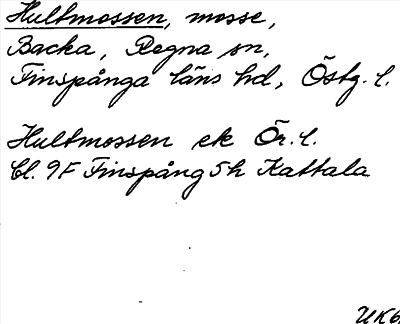 Hultmossen, mosse,
Backa, Regna sn,
Finspånga läns hd, Östg. l.
Hultmossen ek Ör. l.
bl. 9F Finspång 5h Kattala
UK6